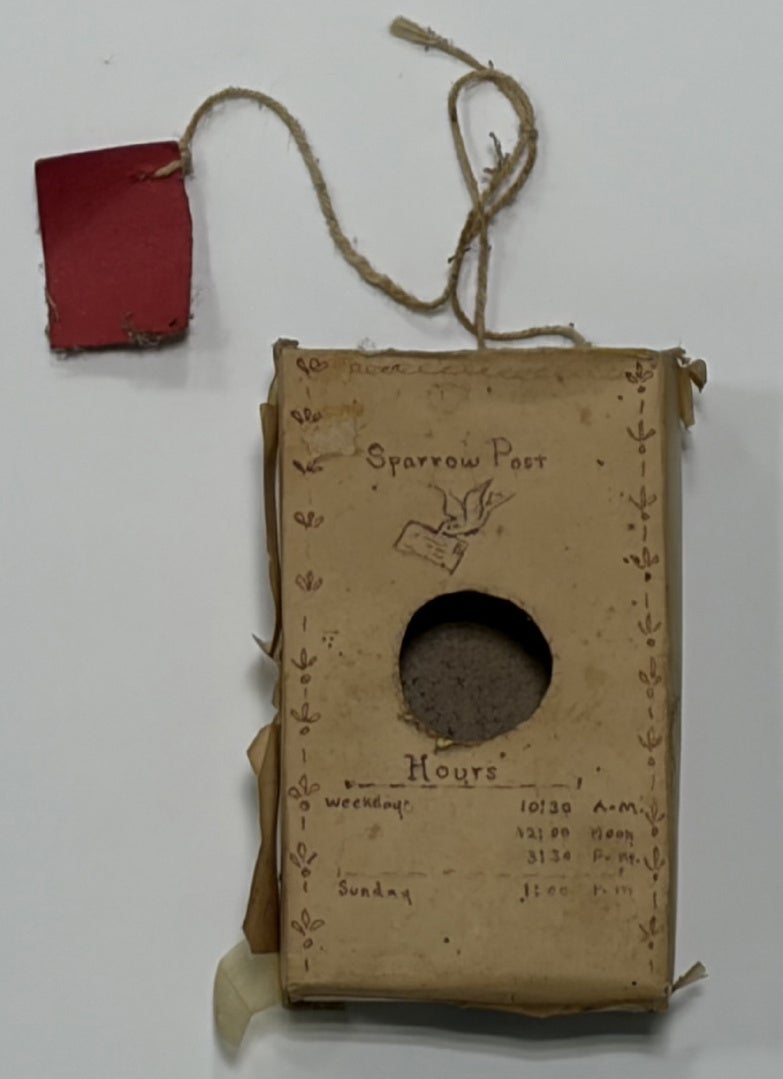 Sparrow Post
Hours
Weekdays 10:30 A.M.
12:00 Noon
3:30 P.M.
Sunday 1:00 P.M.